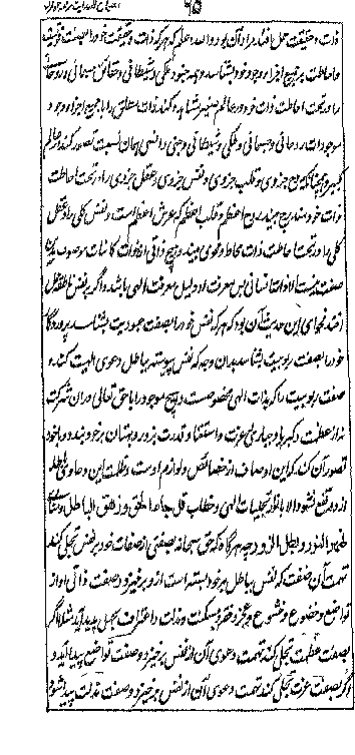 ۹۵
ذات و حقیقت حمل افتد مراد آن بود والله اعلم که هر که ذات و حقیقت خود را بصفت
و احاطت بر جمیع اجزاء وجود خود بشناسد و جنود ملکی و شیطانی و حقائق جسمانی و روحانی
را در تحت احاطت ذات خود در عالم صغیر مشاهده کند ذات مطلق را با جمیع اجزاء وجود
موجودات روحانی و جسمانی و ملکی و شیطانی و جنی و انسی همان نسبت تصور کند در عالم
کبیر و چنانکه روح جزوی و قلب جزوی و نفس جزوی و عقل جزوی را در تحت احاطت
ذات خود بیند روح اعظم و قلب اعظم که عرش اعظم است و نفس کلی را و عقل
کلی را در تحت احاطت ذات محاط و محوی بیند و هیچ ذاتی از ذوات کائنات موصوف بدین
صفت نیست الا ذات انسانی پس معرفت او دلیل معرفت الهی باشد و اگر بر نفس ناطقه حمل
افتد فحوای این حدیث آن بود که هر که نفس خود را بصفت عبودیت بشناسد پروردگار
خود را بصفت ربوبیت بشناسد بدان وجه که نفس پیوسته بباطل دعوی الهیت کند و
صفت ربوبیت را که بذات الهی مخصوصست و هیچ موجود را با حق تعالی در آن شرکت
نه از عظمت و کبریا و جباری و عزت و استغنا و قدرت بزور و بهتان بر خود بندد و با خود
تصور آن کند که این اوصاف از خصائص و لوازم اوست و ظلمت این دعاوی باطله
از و مرتفع نشود الا بانوار تجلیات الهی و خطاب قل جاء الحق و زهق الباطل
طلوع النور و بطل الزور چه هرگاه که حق سبحانه بصفتی از صفات خود بر نفس تجلی کند
تهمت آن صفت که نفس بباطل بر خود بسته است از و برخیزد و صفت ذاتی او از
تواضع و خضوع و خشوع و عجز و فقر و مسکنت و مذلت و اعتراف بجهل پدید آید مثلا اگر
بصفت عظمت تجلی کند تهمت دعوی آن از نفس برخیزد و صفت تواضع پیدا آید و
اگر بصفت عزت تجلی کند تهمت دعوی آن از نفس برخیزد و صفت مذلت پیدا شود